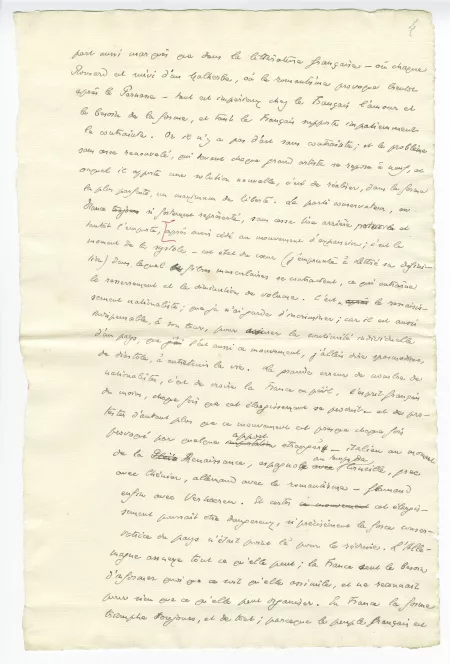 4
part aussi marqués que dans la littérature française – où chaque
Ronsard est suivi d'un Malherbe, où le romantisme provoque
après le Parnasse – tant est impérieux chez le Français l'amour et
le besoin de la forme, et tant le Français supporte impatiemment
la contrainte. Or il n'y a pas d'art sans contrainte; et le problème
sans cesse renouvelé, que chaque grand artiste se repose à neuf, et
auquel il apporte une solution nouvelle, c'est de réaliser, dans la forme
la plus parfaite, un maximum de liberté. Le parti conservateur, en
France si fortement représenté, sans cesse tire arrière et
tantôt l'emporte, après avoir cédé au mouvement d'expansion; c'est le
moment de la systole – cet état du cœur (j'emprunte à Littré sa défini-
tion) dans lequel les fibres musculaires se contractent, ce qui entraîne
le resserrement et la diminution de volume. C'est le resserris-
sement nationaliste; que je n'ai garde d'incriminer; car il est aussi
indispensable, à son tour, pour assurer la continuité individuelle
d'un pays, que l'est aussi ce mouvement, j'allais dire spasmodique,
de diastole, à entretenir la vie. La grande erreur de nombre de
nationalistes, c'est de croire la France en péril, l'esprit français
du moins, chaque fois que cet élargissement se produit – et de pro-
tester d'autant plus que ce mouvement est presque chaque fois
provoqué par quelque apport étranger – italien au moment
de la Renaissance, espagnol au temps de Corneille, grec
avec Chénier, allemand avec le romantisme – flamand
enfin avec Verhaeren. Et certes cet élargis-
sement pourrait être dangereux, si précisément la force conser-
vatrice du pays n'était point là pour le réduire. L'Alle-
magne annexe tout ce qu'elle peut; la France sent le besoin
d'informer quoi que ce soit qu'elle assimile, et ne reconnaît
pour sien que ce qu'elle peut organiser. En France la forme
triomphe toujours, et de tout; parce que le peuple français est